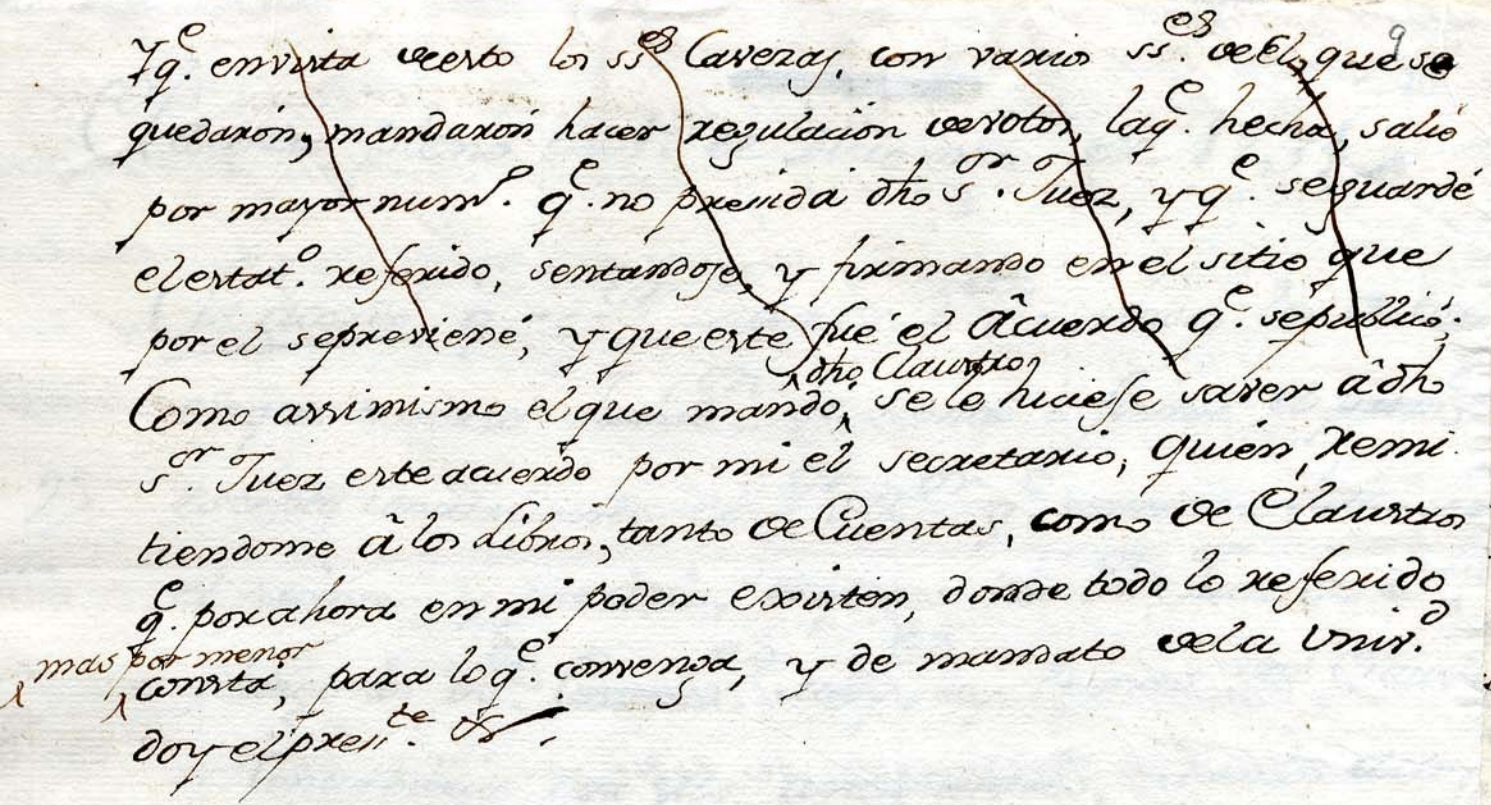 Yq.e en vista de esto los ss.es Cavezas, con varios ss.es de el, que se
quedarón, mandarón hacer regulación de votos, la q.e hecha, salió
por mayor num.o q.e no presida dho s.or Juez, y q.e se guardé
el estat.o referido, sentandose, y firmando en el sitio que
por el se previené, y que este fué el âcuerdo q.e sé publicó;
Como assimismo el que mandó, dho Claustro, se le huciese saver â dho
s.or Juez este acuerdo por mi el secretario, quién, remi
tiendome â los Libros, tanto de Cuentas, como de Claustros
q.e por ahora en mi poder existen, donde todo lo referido
mas por menor consta, para lo q.e convenga, y de mandato de la Univ.d
doy el pres.te &.